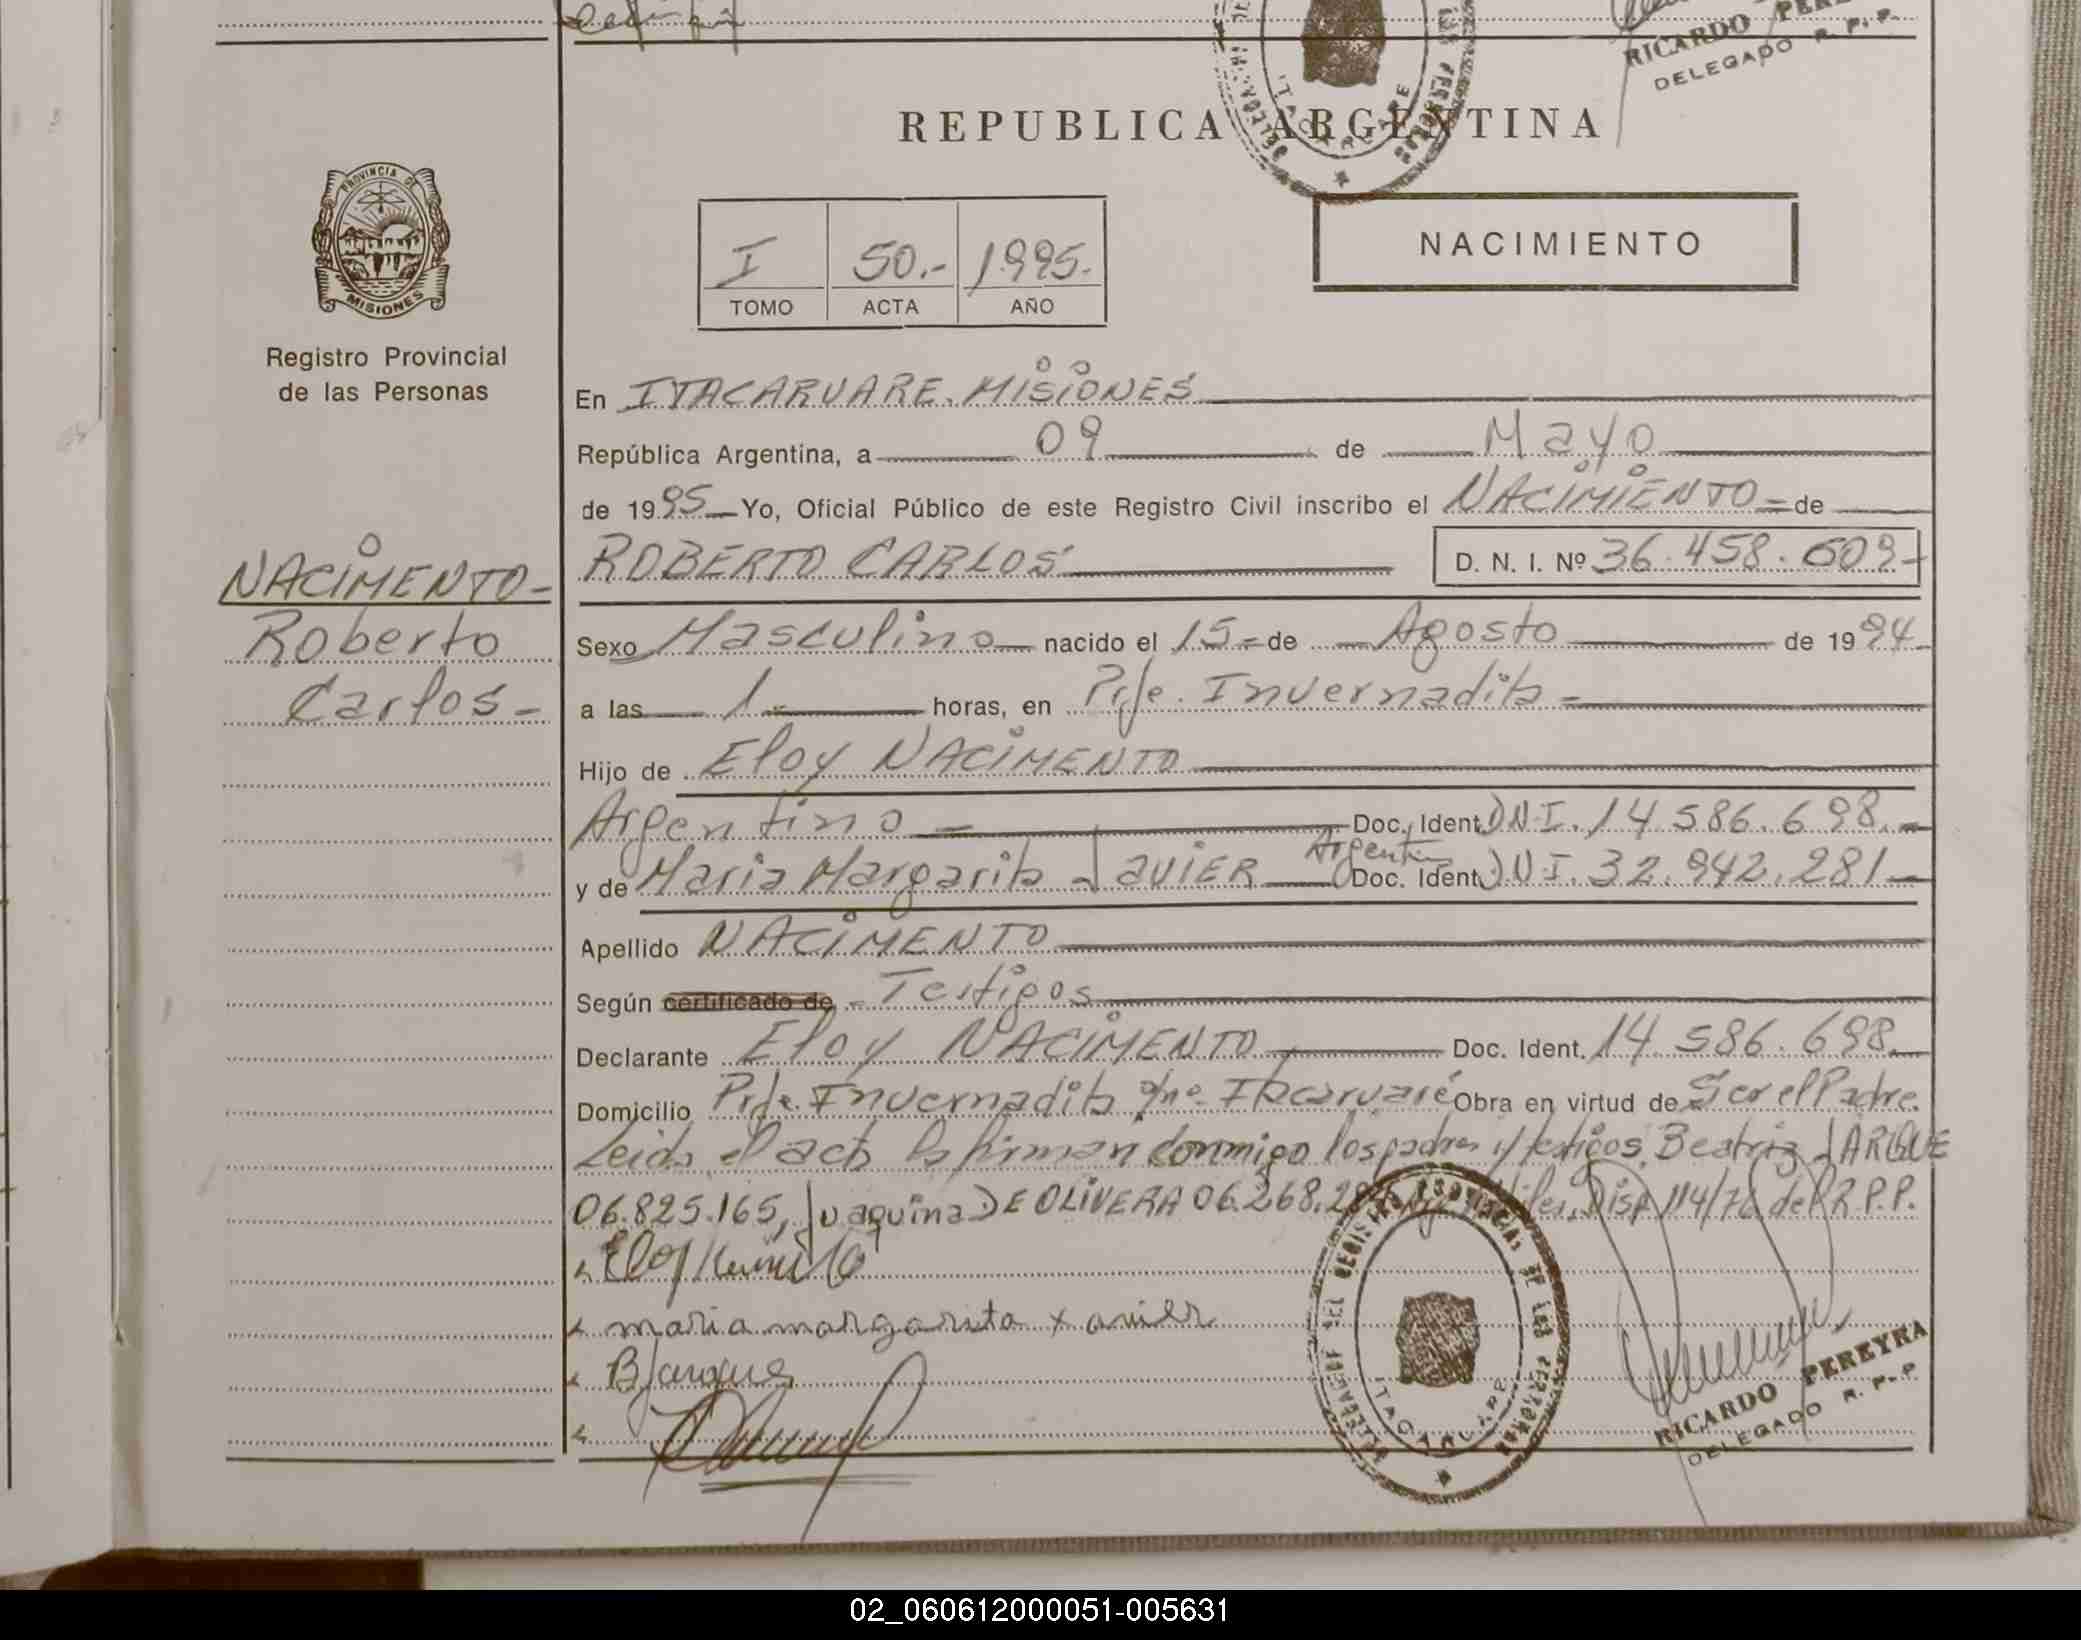 RICARDO PEREYRA
DELEGADO R. P. P.
REPUBLICA ARGENTINA
PROVINCIA DE
MISIONES
Registro Provincial
de las Personas
I 50.- 1995.-
TOMO ACTA AÑO
NACIMIENTO
En ITACARUARE. MISIONES
República Argentina, a 09 de Mayo
de 1995 Yo, Oficial Público de este Registro Civil inscribo el NACIMIENTO = de
NACIMENTO -
Roberto
Carlos -
ROBERTO CARLOS D. N. I. Nº 36.458.609-
Sexo Masculino nacido el 15 = de Agosto de 1994
a las 1 horas, en Prje. Invernadita =
Hijo de Eloy NACIMENTO
Argentino Doc. Ident. DNI. 14.586.698.-
Argentin
y de Maria Margarita Javier Doc. Ident. DNI. 32.942.281-
Apellido NACIMENTO
Según certificado de - Testigos
Declarante Eloy NACIMENTO Doc. Ident. 14.586.698.
Domicilio Prje. Invernadita Itacaruaré Obra en virtud de Ser el Padre.
Leida el acta la firman conmigo los padres y testigos, Beatriz JARQUE
06.825.165, Juaquina DE OLIVERA 06.268. Disp. 114/76 del R.P.P.
Eloy
maria margarita xavier
BJarque
DELEGACION DEL REGISTRO PROVINCIAL DE LAS PERSONAS
ITACARUARE
RICARDO PEREYRA
DELEGADO R. P. P.
02_060612000051-005631